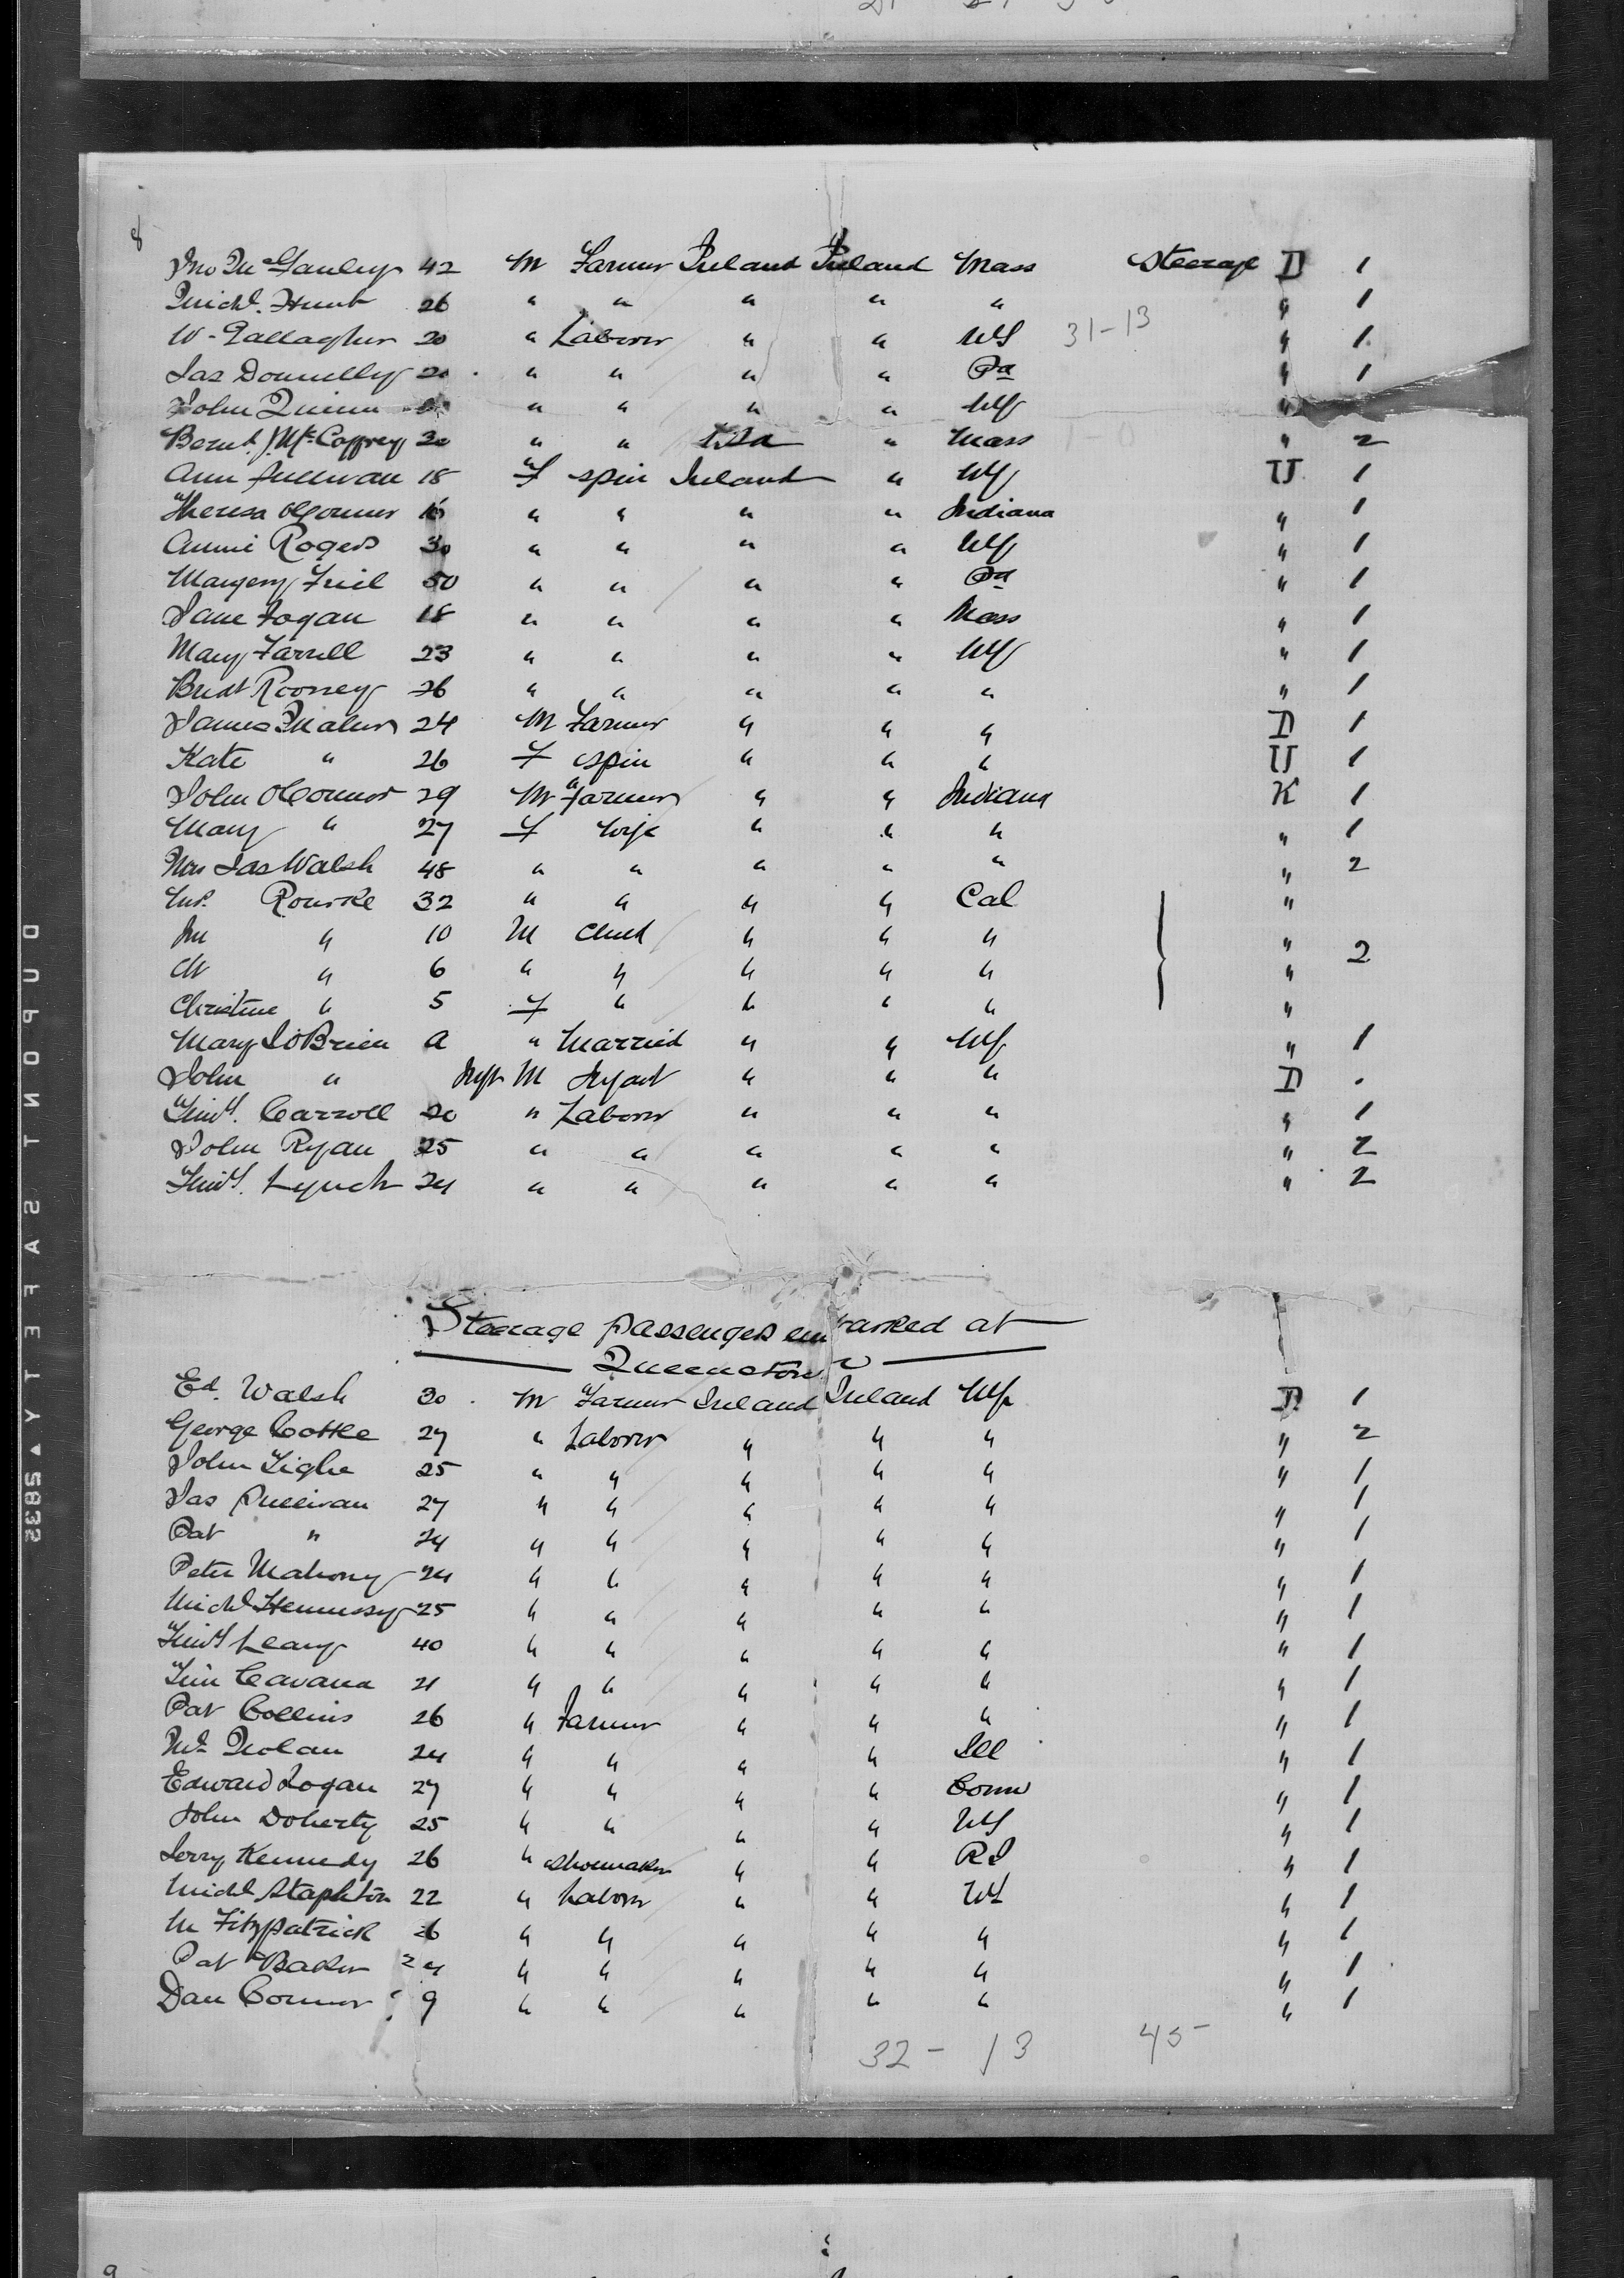 8
Jno McGauley 42 M Farmer Ireland Ireland Mass Steerage D 1
Michl. Hunt 26 " " " " " " 1
W. Gallagher 20 " Laborer " " NY 31-13 " 1
Jas Donnelly 20 " " " " Pa " 1
John Quinn " " " " NY "
Bernd. J. McCaffrey 30 " " USA " Mass " 2
Ann Sullivan 18 F spin Ireland " NY U 1
Theresa OConnor 16 " " " " Indiana " 1
Annie Rogers 30 " " " " NY " 1
Margery Friel 50 " " " " Pa " 1
Jane Logan 18 " " " " Mass " 1
Mary Farrell 23 " " " " NY " 1
Bridt Rooney 26 " " " " " " 1
James Maher 24 M Farmer " " " D 1
Kate " 26 F spin " " " U 1
John OConnor 29 M Farmer " " Indiana K 1
Mary " 27 F wife " " " " 1
Mrs Jas Walsh 48 " " " " " " 2
Mrs. Rourke 32 " " " " Cal "
Jn " 10 M Child " " " " 2
W " 6 " " " " " "
Christine " 5 F " " " " "
Mary J OBrien a " Married " " NY " 1
John " Inft M Infant " " " D .
Timy. Carroll 20 " Laborer " " " " 1
John Ryan 25 " " " " " " 2
Timy. Lynch 24 " " " " " " 2
Steerage passengers embarked at
Queenstown
Ed. Walsh 30 M Farmer Ireland Ireland NY D 1
George Cottle 27 " Laborer " " " " 2
John Tighe 25 " " " " " " 1
Jas Sullivan 27 " " " " " " 1
Pat " 24 " " " " " " 1
Peter Mahony 24 " " " " " " 1
Michl Hennessy 25 " " " " " " 1
Timy Leary 40 " " " " " " 1
Tim Cavana 21 " " " " " " 1
Pat Collins 26 " Farmer " " " " 1
Mt Nolan 24 " " " " Ill " 1
Edward Logan 27 " " " " Conn " 1
John Doherty 25 " " " " NY " 1
Jerry Kennedy 26 " Shoemaker " " RI " 1
Michl Stapleton 22 " Laborer " " NY " 1
M Fitzpatrick 26 " " " " " " 1
Pat Baker 24 " " " " " " 1
Dan Connor 9 " " " " " " 1
32 - 13 45-
DUPONT SAFETY ▲ 5835
9